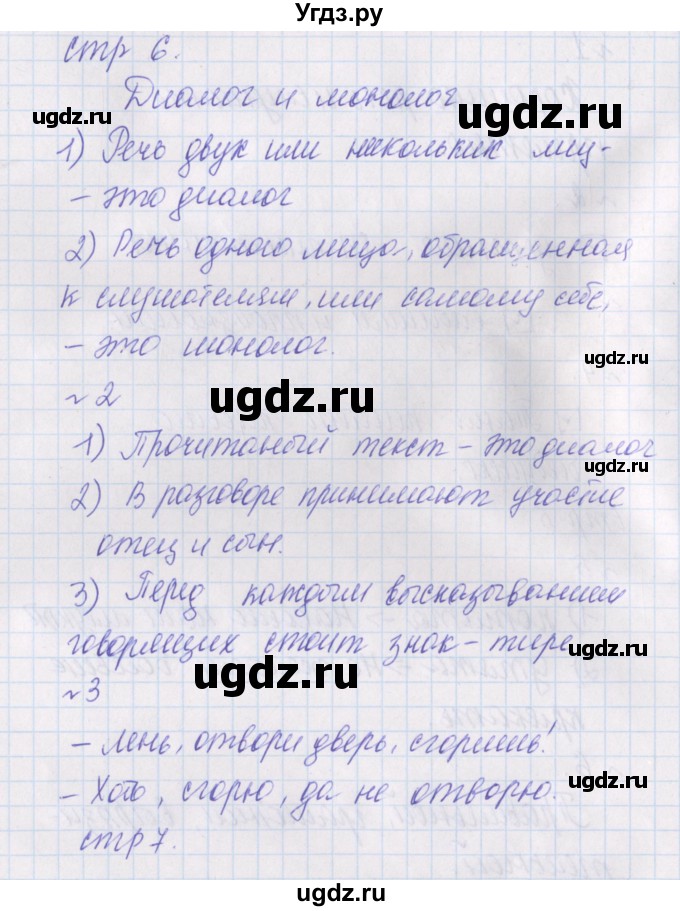 Угдз.ру
стр 6.
Диалог и монолог
1) Речь двух или нескольких лиц-
- это диалог
2) Речь одного лица, обращенная
к слушателям, или самому себе,
- это монолог.
№2
1) Прочитаный текст - это диалог
2) В разговоре принимают участие
отец и сын.
3) Перед каждым высказыванием
говорящих стоит знак - тире
№3
- Лень, отвори дверь, сгоришь!
- Хоть, сгорю, да не отворю.
стр 7.
ugdz.ru
ugdz.ru
ugdz.ru
ugdz.ru
ugdz.ru
ugdz.ru
ugdz.ru
ugdz.ru
ugdz.ru
ugdz.ru
ugdz.ru